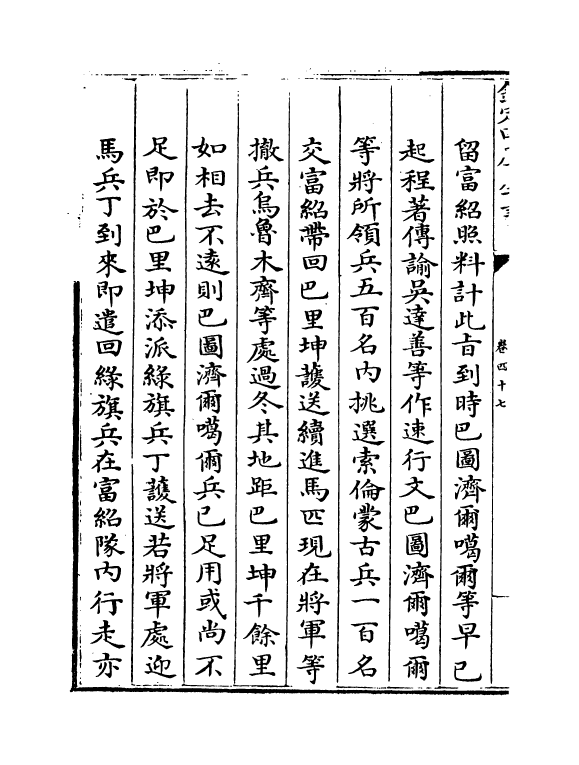 卷四十七
留富紹照料計此旨到時巴圖濟爾噶爾等早已
起程著傳諭吳達善等作速行文巴圖濟爾噶爾
等將所領兵五百名內挑選索倫蒙古兵一百名
交富紹帶回巴里坤護送續進馬匹現在將軍等
撤兵烏魯木齊等處過冬其地距巴里坤千餘里
如相去不遠則巴圖濟爾噶爾兵已足用或尚不
足即於巴里坤添派綠旗兵丁護送若將軍處迎
馬兵丁到來即遣回綠旗兵在富紹隊內行走亦